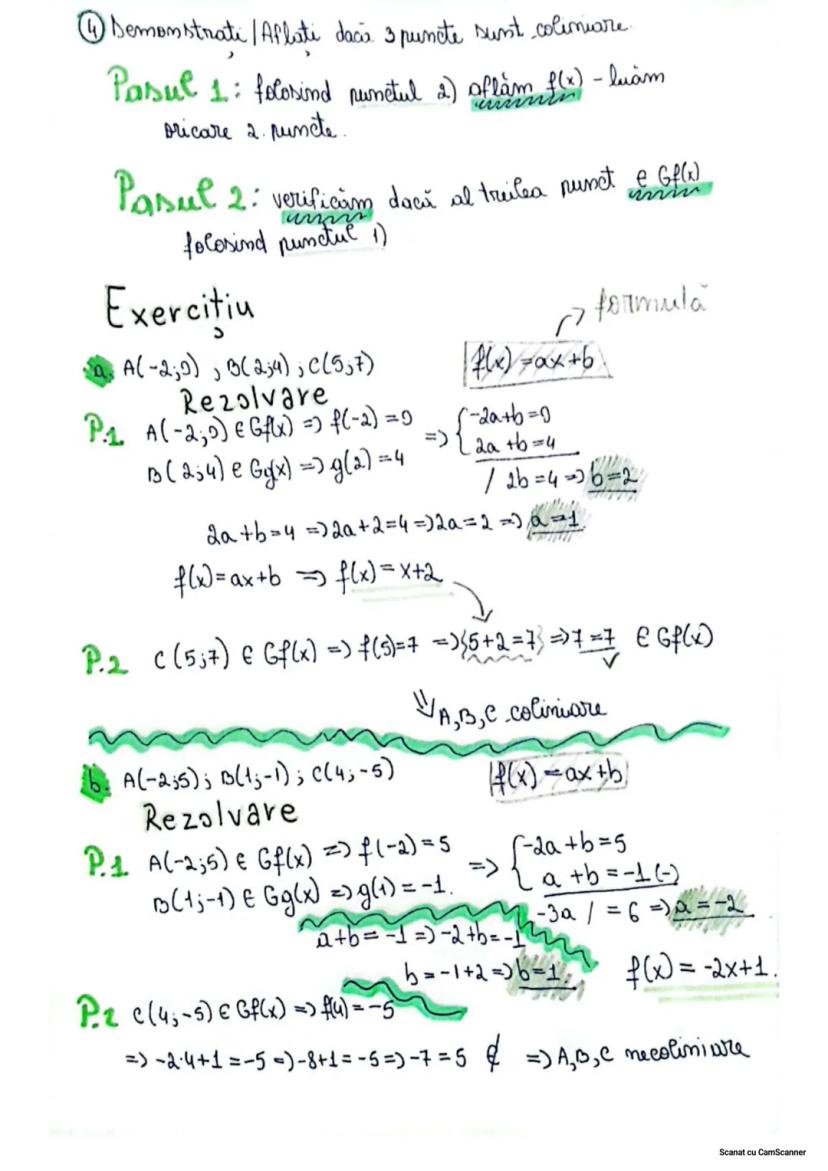 ④ Demonstrați / Aflați dacă 3 puncte sunt coliniare.
Pasul 1: folosind punctul 2) aflăm f(x) - luăm
oricare 2 puncte.
Pasul 2: verificăm dacă al treilea punct ∈ Gf(x)
folosind punctul 1)
Exercițiu
formulă
a. A(-2;0) ; B(2;4) ; C(5;7)
f(x)=ax+b
Rezolvare
P.1 A(-2;0) ∈ Gf(x) => f(-2) = 0 => { -2a+b=0
B(2;4) ∈ Gg(x) => g(2) = 4 2a+b=4
/ 2b=4 => b=2
2a+b=4 => 2a+2=4 => 2a=2 => a=1
f(x)=ax+b => f(x)=x+2
P.2 C(5;7) ∈ Gf(x) => f(5)=7 => {5+2=7} => 7=7 ∈ Gf(x)
✓
⇓ A,B,C coliniare
b. A(-2;5) ; B(1;-1) ; C(4;-5)
f(x)=ax+b
Rezolvare
P.1 A(-2;5) ∈ Gf(x) => f(-2)=5 => { -2a+b=5
B(1;-1) ∈ Gg(x) => g(1)=-1. a+b=-1 (-)
-3a / = 6 => a=-2
a+b=-1 => -2+b=-1
b=-1+2 => b=1.
f(x) = -2x+1.
P.2 C(4;-5) ∈ Gf(x) => f(4)=-5
=> -2·4+1=-5 => -8+1=-5 => -7=5 ∉ => A,B,C necoliniare
Scanat cu CamScanner